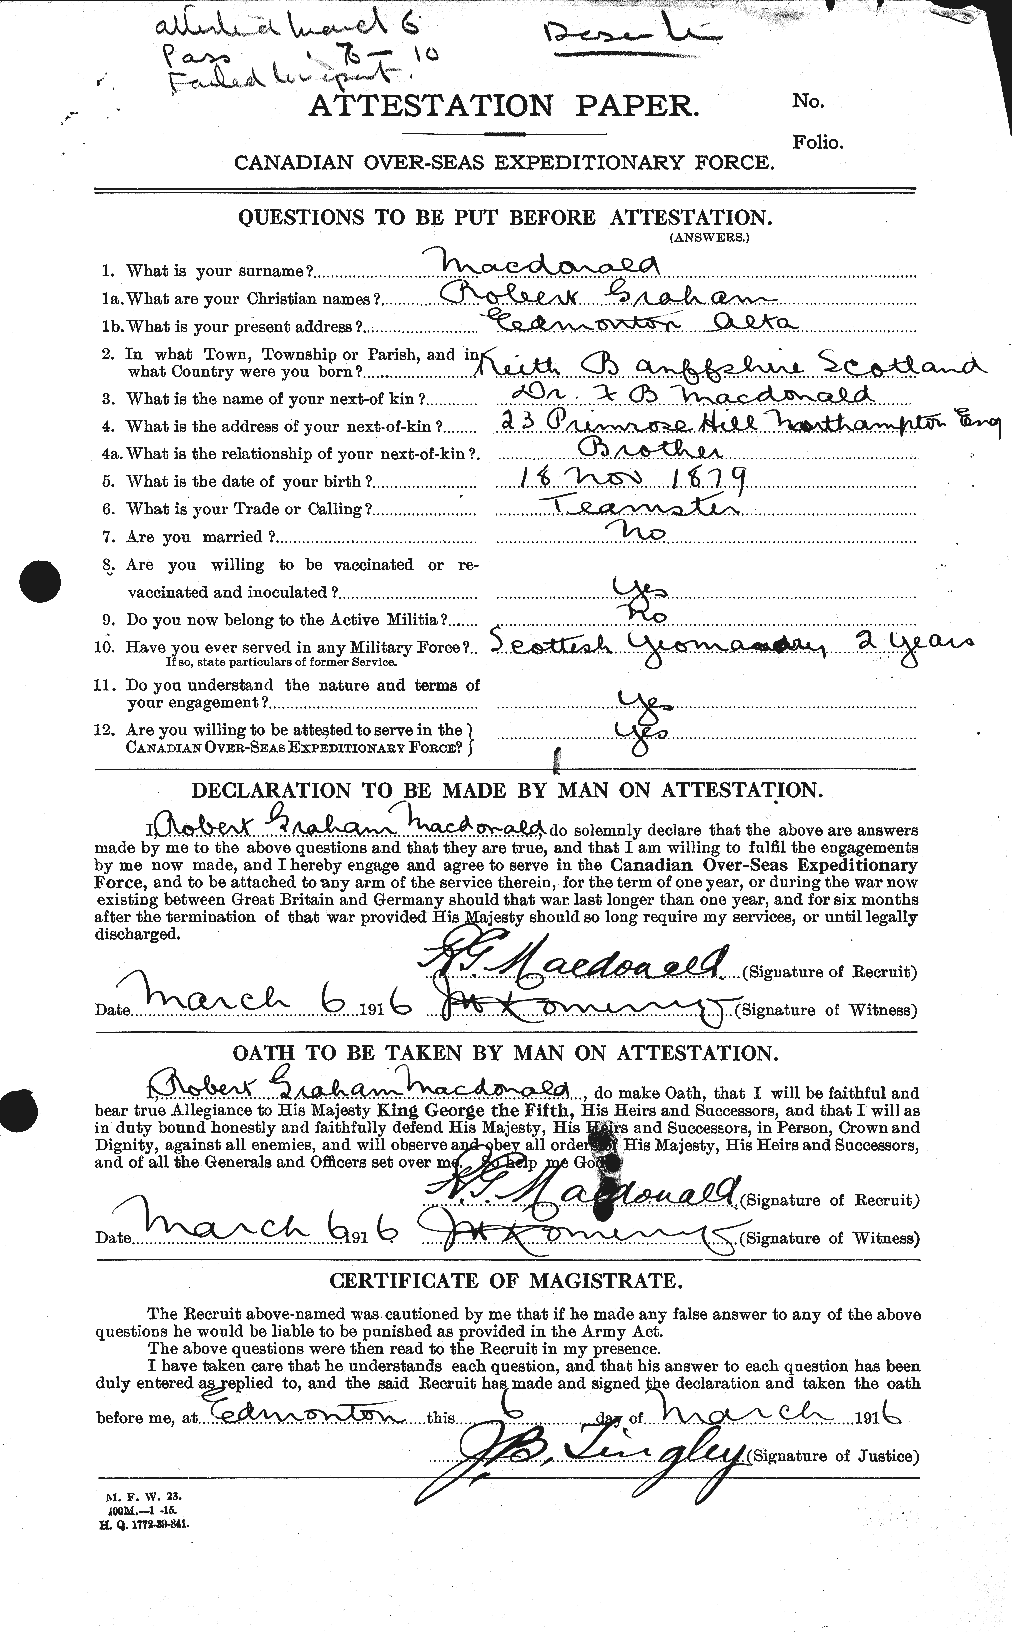 attested March 6
Pass 7 - 10
Failed to report.
ATTESTATION PAPER.
No.
Folio.
CANADIAN OVER-SEAS EXPEDITIONARY FORCE.
QUESTIONS TO BE PUT BEFORE ATTESTATION.
(ANSWERS.)
1. What is your surname? Macdonald
1a. What are your Christian names? Robert Graham
1b. What is your present address? Edmonton Alta
2. In what Town, Township or Parish, and in
what Country were you born? Keith Banffshire Scotland
3. What is the name of your next-of kin? Dr. F B Macdonald
4. What is the address of your next-of-kin? 23 Primrose Hill Northampton Eng
4a. What is the relationship of your next-of-kin? Brother
5. What is the date of your birth? 18 Nov 1879
6. What is your Trade or Calling? Teamster
7. Are you married? No
8. Are you willing to be vaccinated or re-
vaccinated and inoculated? Yes
9. Do you now belong to the Active Militia? No
10. Have you ever served in any Military Force? Scottish Yeomandry 2 Years
If so, state particulars of former Service.
11. Do you understand the nature and terms of
your engagement? Yes
12. Are you willing to be attested to serve in the
CANADIAN OVER-SEAS EXPEDITIONARY FORCE? Yes
DECLARATION TO BE MADE BY MAN ON ATTESTATION.
I, Robert Graham Macdonald, do solemnly declare that the above are answers
made by me to the above questions and that they are true, and that I am willing to fulfil the engagements
by me now made, and I hereby engage and agree to serve in the Canadian Over-Seas Expeditionary
Force, and to be attached to any arm of the service therein, for the term of one year, or during the war now
existing between Great Britain and Germany should that war last longer than one year, and for six months
after the termination of that war provided His Majesty should so long require my services, or until legally
discharged.
R G Macdonald (Signature of Recruit)
Date March 6 1916 (Signature of Witness)
OATH TO BE TAKEN BY MAN ON ATTESTATION.
I, Robert Graham Macdonald, do make Oath, that I will be faithful and
bear true Allegiance to His Majesty King George the Fifth, His Heirs and Successors, and that I will as
in duty bound honestly and faithfully defend His Majesty, His Heirs and Successors, in Person, Crown and
Dignity, against all enemies, and will observe and obey all orders of His Majesty, His Heirs and Successors,
and of all the Generals and Officers set over me. So help me God.
R G Macdonald (Signature of Recruit)
Date March 6 1916 (Signature of Witness)
CERTIFICATE OF MAGISTRATE.
The Recruit above-named was cautioned by me that if he made any false answer to any of the above
questions he would be liable to be punished as provided in the Army Act.
The above questions were then read to the Recruit in my presence.
I have taken care that he understands each question, and that his answer to each question has been
duly entered as replied to, and the said Recruit has made and signed the declaration and taken the oath
before me, at Edmonton this 6 day of March 1916
J.B. Tingley (Signature of Justice)
M. F. W. 23.
400M.—1-15.
H. Q. 1772-39-841.